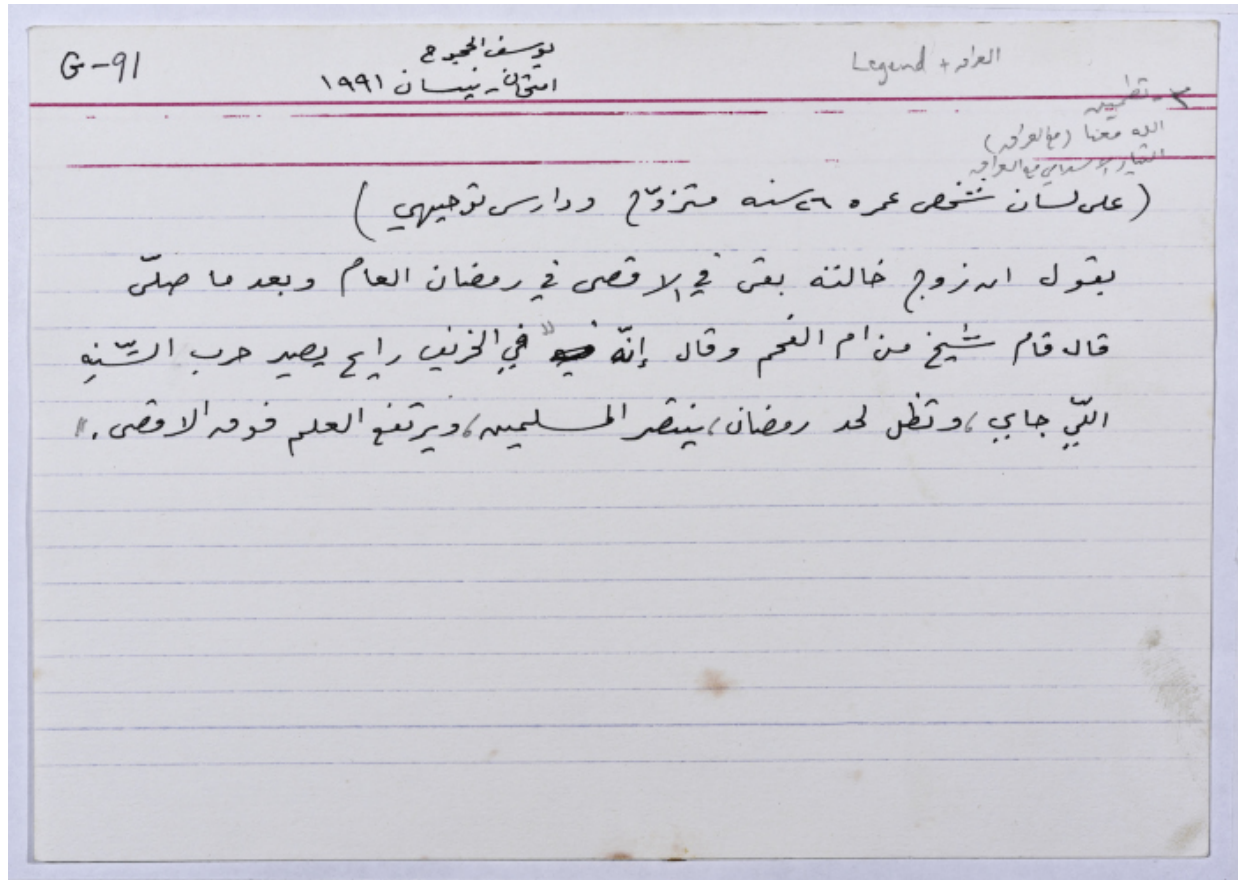 G-91
يوسف الحجوج
امتحان - نيسان ١٩٩١
Legend + العراق
٣- تطمين
الله معنا (مع العراق)
التيار الاسلامي مع العراق
(على لسان شخص عمره ٢٦ سنه متزوّج ودارس توجيهي)
بقول ان زوج خالته بقى في الاقصى في رمضان العام وبعد ما صلّى
قال قام شيخ من ام الفحم وقال إنّه "في الخريف رايح يصير حرب السّنِه
اللّي جاي، وتظل لحد رمضان، ينتصر المسلمين، ويرتفع العلم فوق الاقصى."